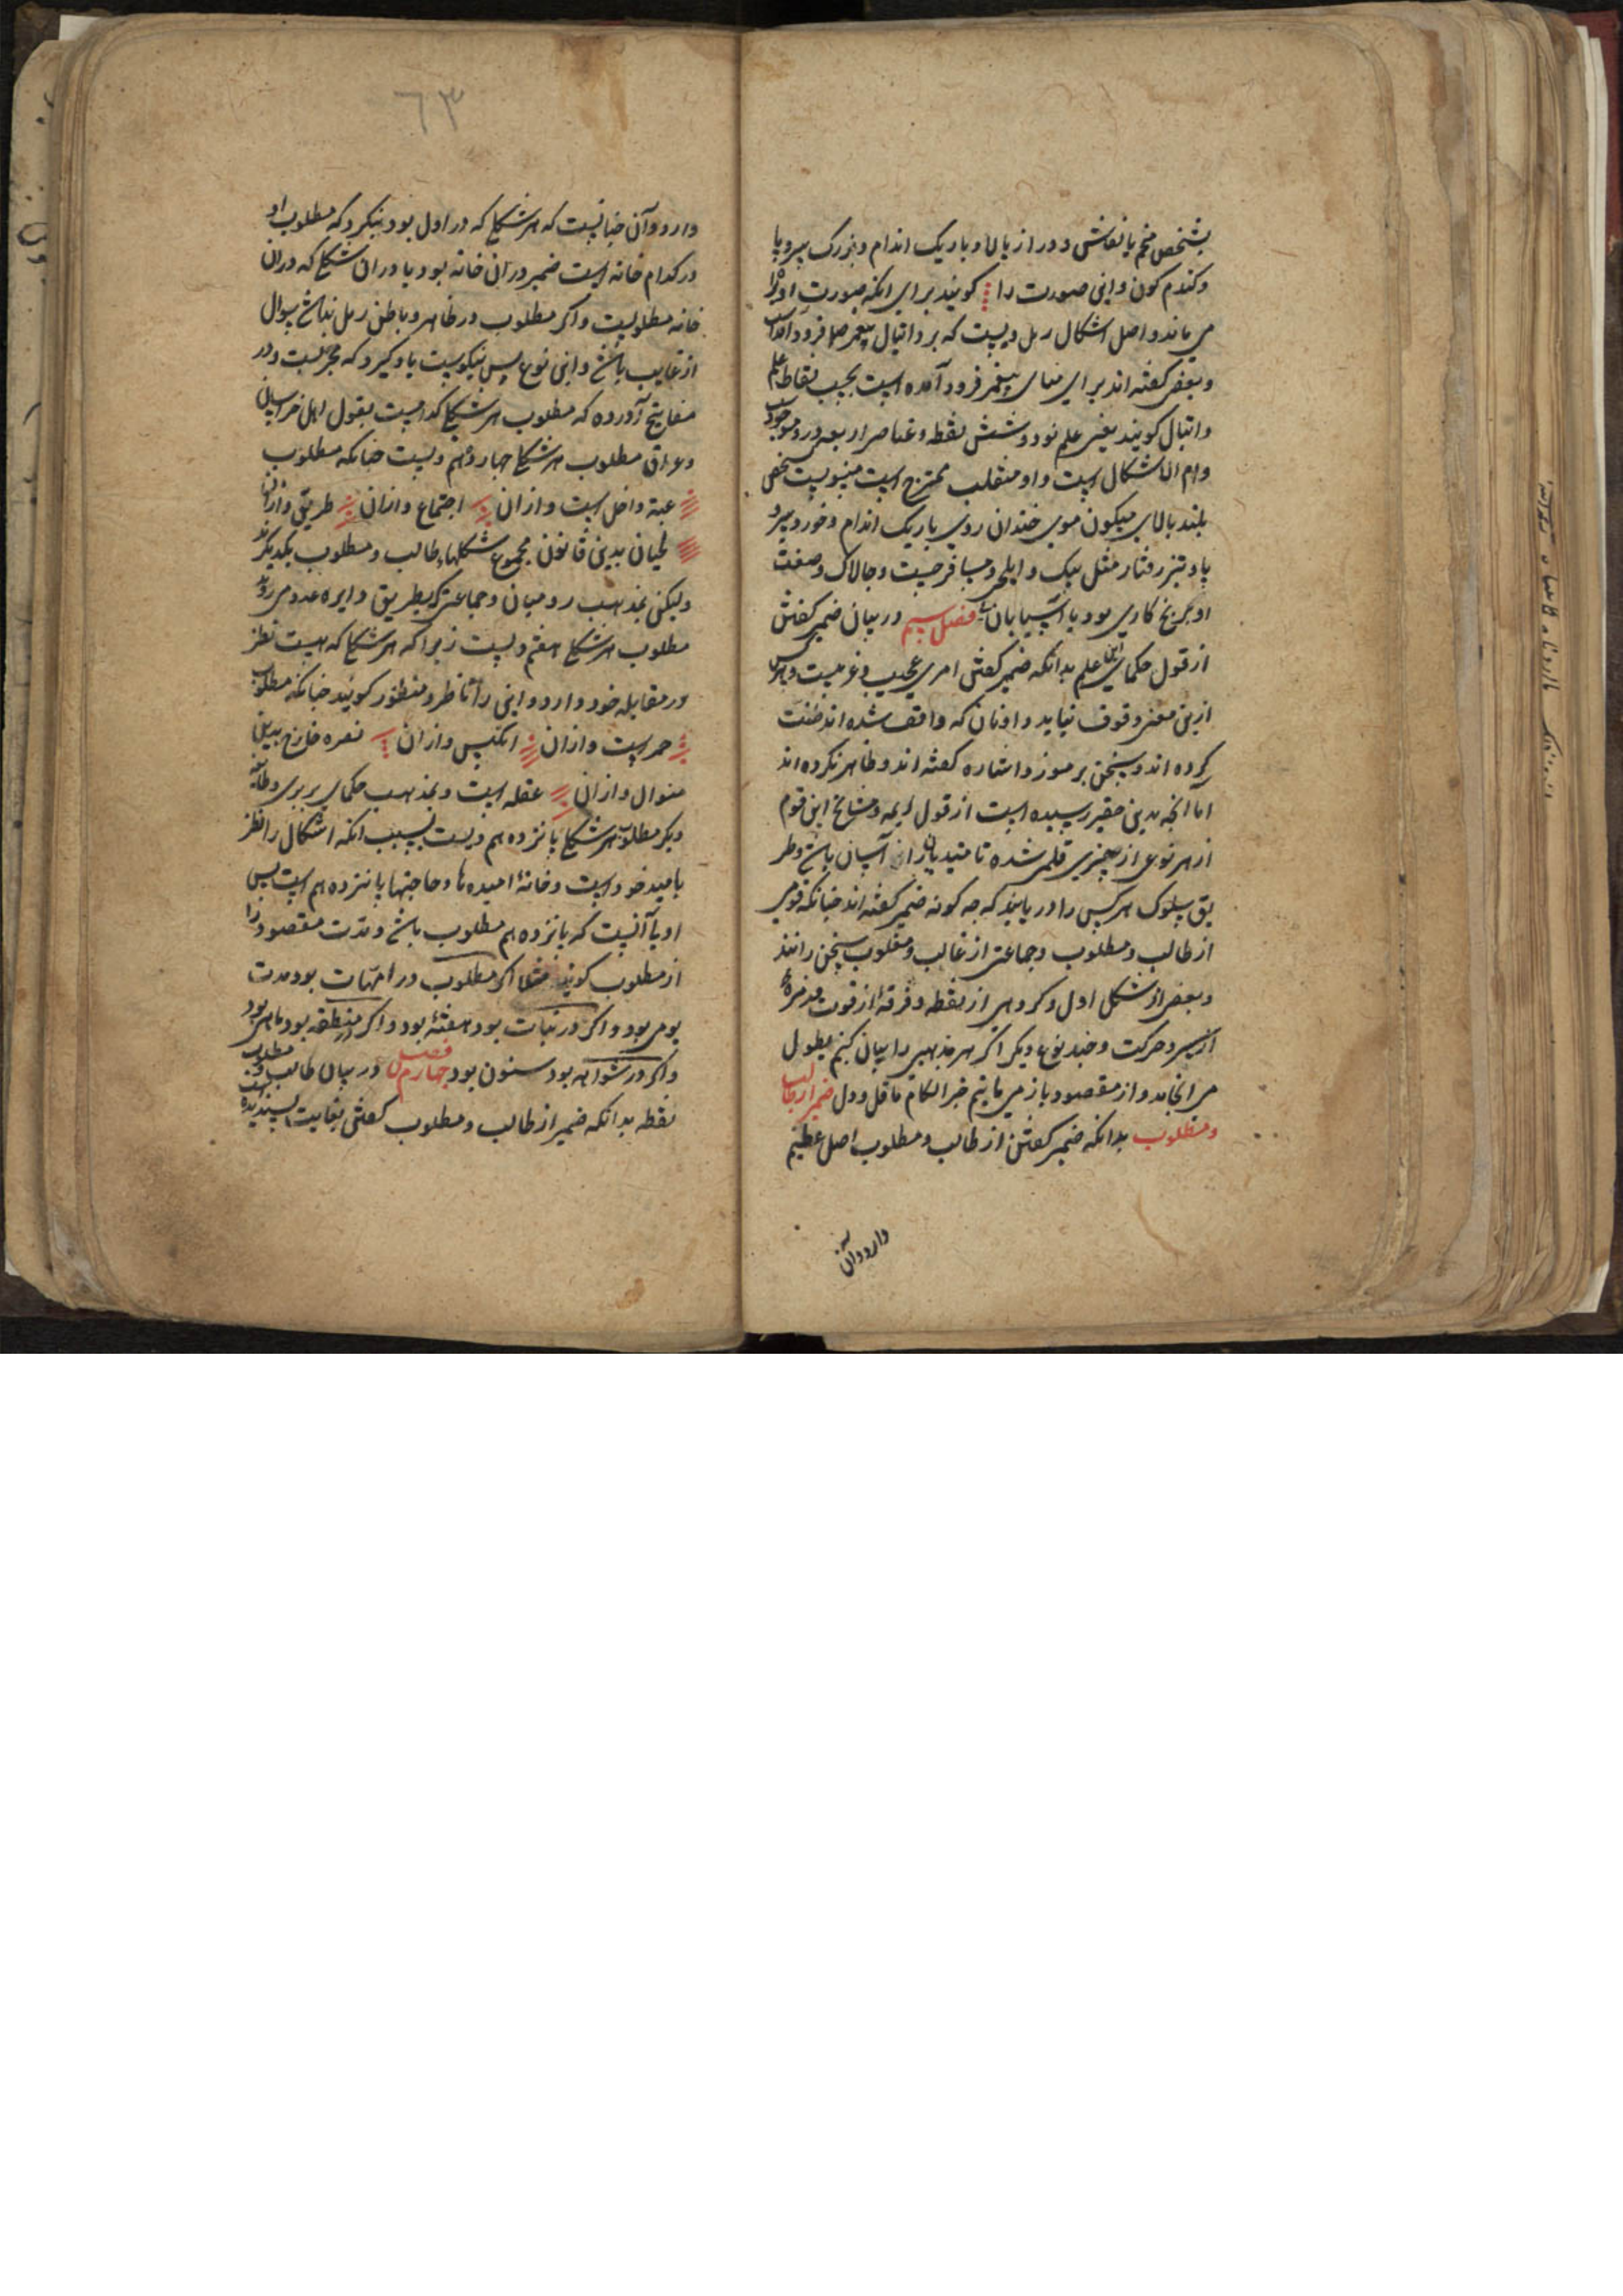 بشخص منجم یا نقاش و دراز بالا و باریک اندام و بزرک سر و پا
و کندم کون و این صورت را گویند برای انکه صورت او را
می ماند و اصل اشکال رمل ویست که بر دانیال پیغمبر فرود آمد
و بعضی گفته اند برای پیغمبر فرود آمده است بحسب نقاط علم
دانیال گویند یعنی علم نود و شش نقطه و عناصر اربعه در و موجود
و ام الاشکال است و او منقلب ممتزج است منسوبست بشخص
بلند بالای میکون موی خندان روی باریک اندام و خورد سر و
پا و تیز رفتار مثل پیک و ایلچی و مسافر چست و چالاک و صفت
او برنج کاری بود یا آسیابان فصل سیم در بیان ضمیر کفتن
از قول حکمای این علم بدانکه ضمیر کفتن امری عجیب و غریبست و هرکس
ازین معنی وقوف نیاید و اونان که واقف شده اند ضنت
کرده اند و سخن برموز و اشاره کفته اند و ظاهر نکرده اند
اما انچه بدین حقیر رسیده است از قول ایمه و مشایخ این قوم
از هر نوعی از چیزی قلمی شده تا مبتدیان را آسان باشد و طر
یق سلوک هر کس را دریابند که چه کونه ضمیر کفته اند چنانکه قومی
از طالب و مطلوب و جماعتی از غالب و مغلوب سخن رانند
و بعضی از شکل اول و کروهی از نقطه و فرقه از قوت و زمره
از سیر و حرکت و چند نوع دیکر اگر هر مذهبی را بیان کنم بطول
می انجامد و از مقصود باز می مانیم خیر الکلام ما قل و دل ضمیر از طالب
و مطلوب بدانکه ضمیر کفتن از طالب و مطلوب اصل عظیم
دارد و آن
٦٣
دارد و آن چنانست که هر شکلی که در اول بود بنکرد که مطلوب او
در کدام خانه است ضمیر در آن خانه بود یا در ان شکلی که در ان
خانه مطلوبست و اکر مطلوب در ظاهر و باطن رمل نباشد سوال
از غایب باشد و این نوع بس نیکوست یاد کیرد که مجربست و در
مفاتیح آورده که مطلوب هر شکلی کدامست بقول اهل خراسان
و عراق مطلوب هر شکلی چهاردهم ویست چنانکه مطلوب
عتبة داخل است و از ان اجتماع و از ان طریق و از ان
لحیان بدین قانون مجموع شکلها طالب و مطلوب یکدیکرند
ولیکن بمذهب رومیان و جماعتی که بطریق دایره عدد می روند
مطلوب هر شکلی هفتم ویست زیرا که هر شکلی که هست نظر
در مقابله خود دارد و این را ناظر و منظور کویند چنانکه مطلوب
حمره است و از ان انکیس و از ان نصره خارج بدین
منوال و از ان عقله است و بمذهب حکمای بربری و طایفه
دیکر مطلوب هر شکلی پانزدهم ویست بسبب انکه اشکال را نظر
بامید خود است و خانه امیدها و حاجتها پانزدهم است پس
اولی آنست که پانزدهم مطلوب باشد و مدت مقصود را
از مطلوب کویند مثلا اکر مطلوب در امهات بود مدت
یومی بود و اکر در بنات بود هفته بود و اکر در بود ماهی بود
و اکر در شواهد بود سنون بود فصل چهارم در بیان طالب و مطلوب
نقطه بدانکه ضمیر از طالب و مطلوب کفتن بغایت پسندیده